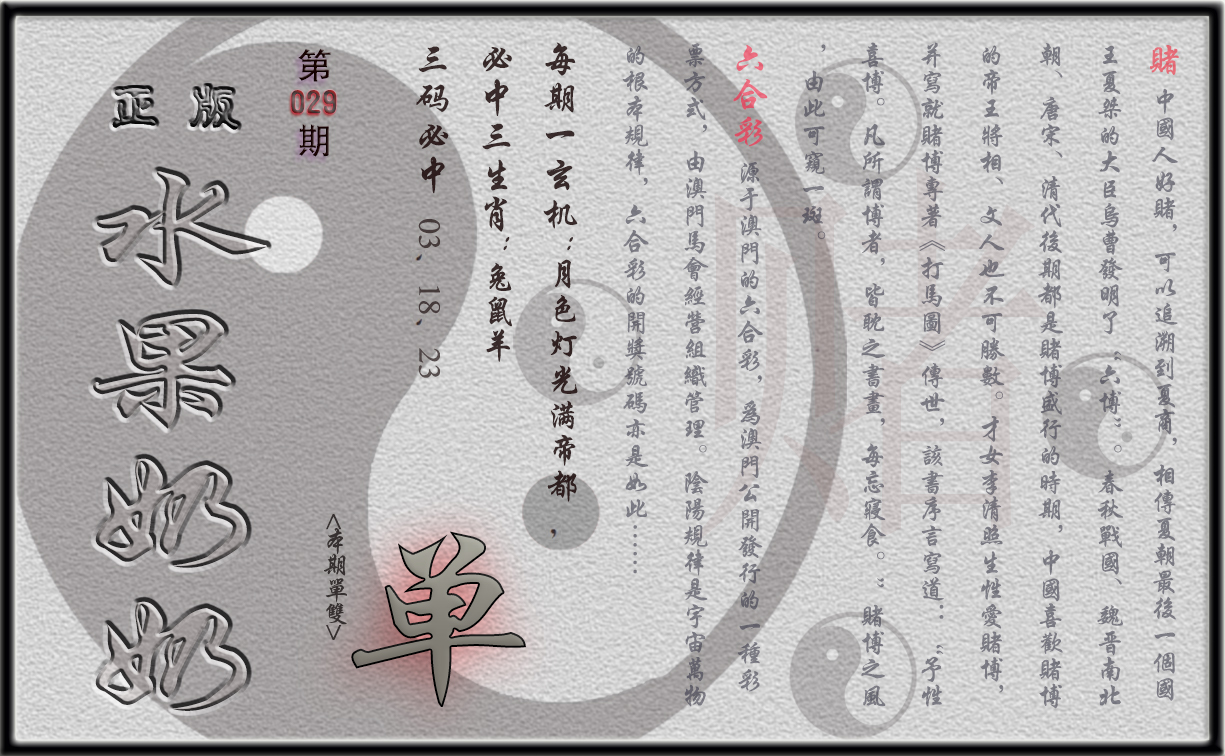 賭 中國人好賭，可以追溯到夏商，相傳夏朝最後一個國
王夏桀的大臣烏曹發明了“六博”。春秋戰國、魏晋南北
朝、唐宋、清代後期都是賭博盛行的時期，中國喜歡賭博
的帝王將相、文人也不可勝數。才女李清照生性愛賭博，
并寫就賭博專著《打馬圖》傳世，該書序言寫道：“予性
喜博。凡所謂博者，皆耽之書畫，每忘寢食。”賭博之風
，由此可窺一斑。
六合彩 源于澳門的六合彩，爲澳門公開發行的一種彩
票方式，由澳門馬會經營組織管理。陰陽規律是宇宙萬物
的根本規律，六合彩的開獎號碼亦是如此……
每期一玄机：月色灯光满帝都，
必中三生肖：兔鼠羊
三码必中 03、18、23
第
029
期
<本期單雙>
单
正版
水果奶奶
賭